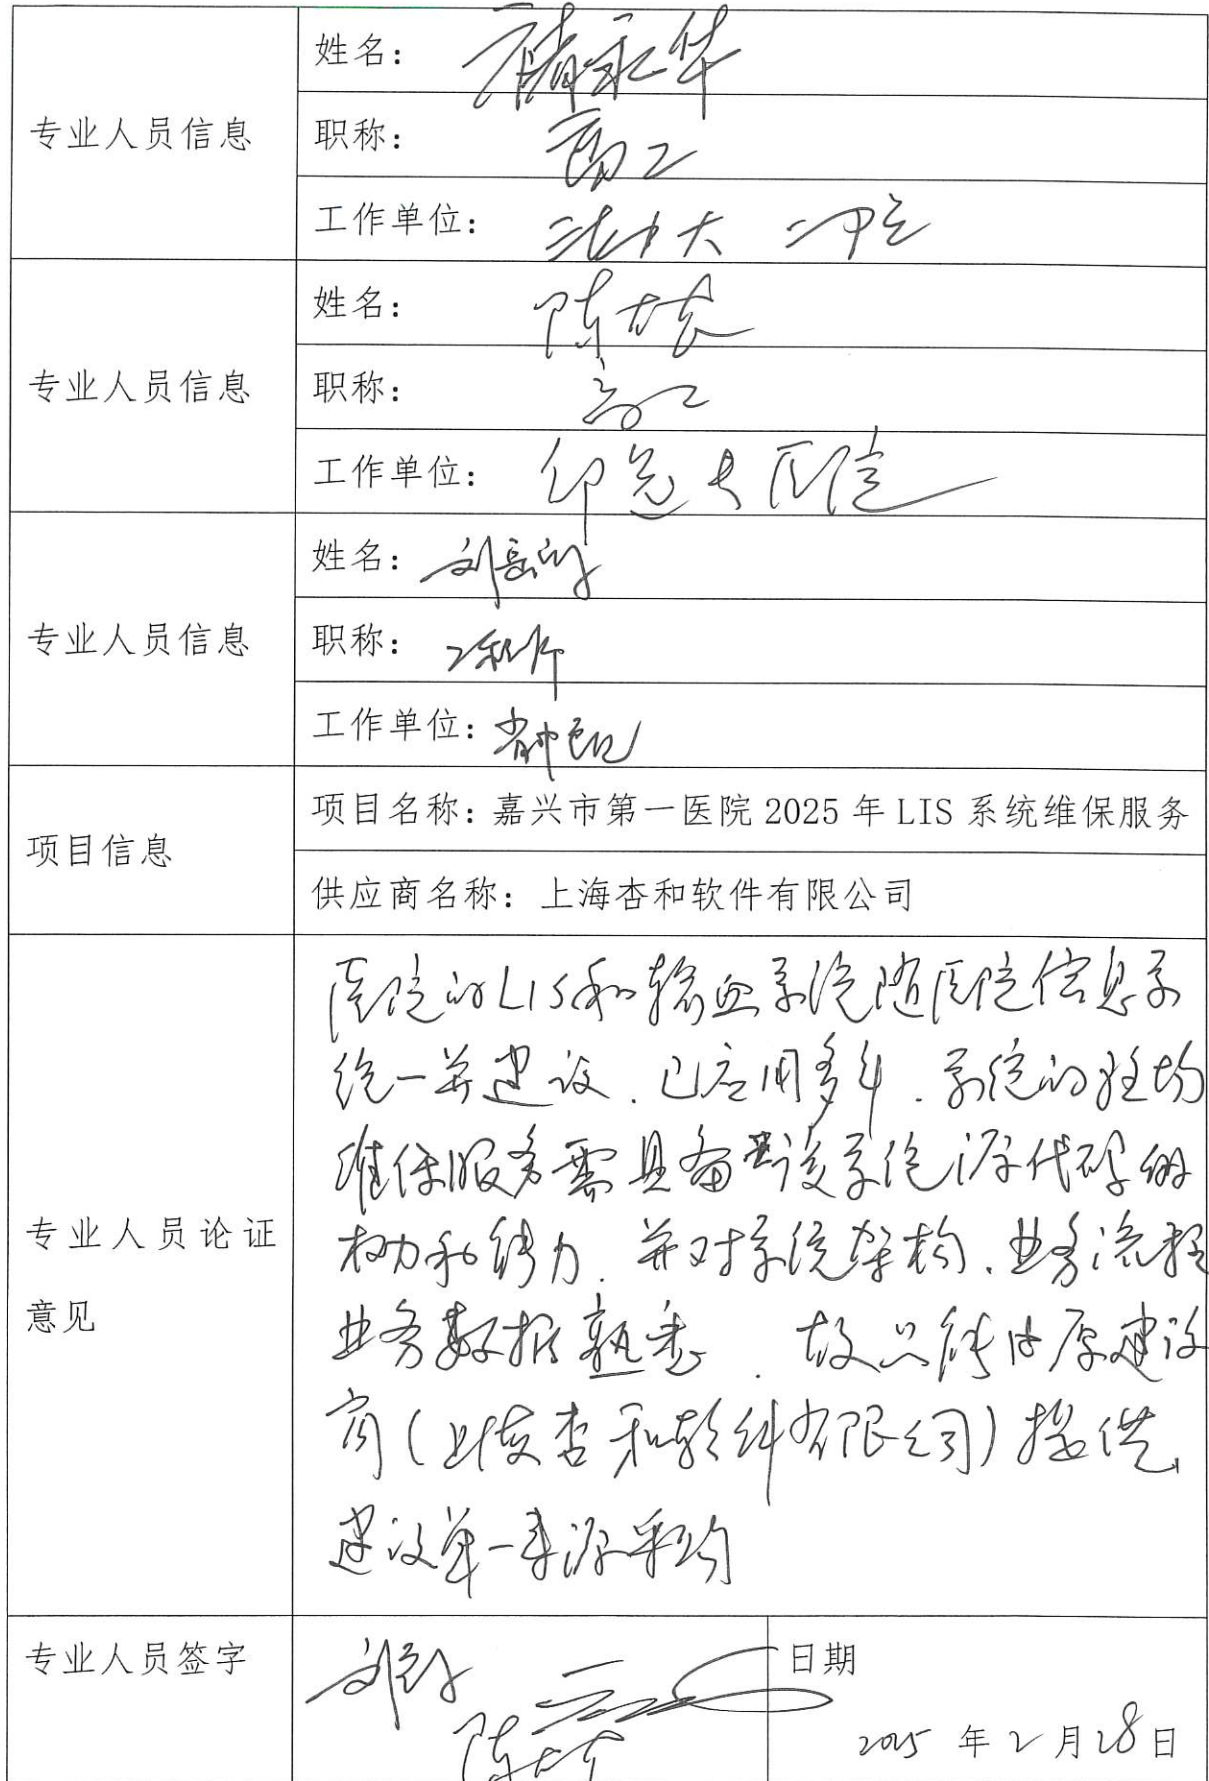 专业人员信息
姓名：
职称：高工
工作单位：
专业人员信息
姓名：陈
职称：高工
工作单位：邵逸夫医院
专业人员信息
姓名：刘
职称：工程师
工作单位：省肿
项目信息
项目名称：嘉兴市第一医院 2025 年 LIS 系统维保服务
供应商名称：上海杏和软件有限公司
专业人员论证
意见
医院的LIS和输血系统随医院信息系
统一并建设，已应用多年，系统的驻场
维保服务需具备该系统源代码的
权力和能力，并对系统架构、业务流程
业务数据熟悉，故只能由原建设
商(上海杏和软件有限公司)提供，
建议单一来源采购
专业人员签字
日期
2025 年 2 月 28 日